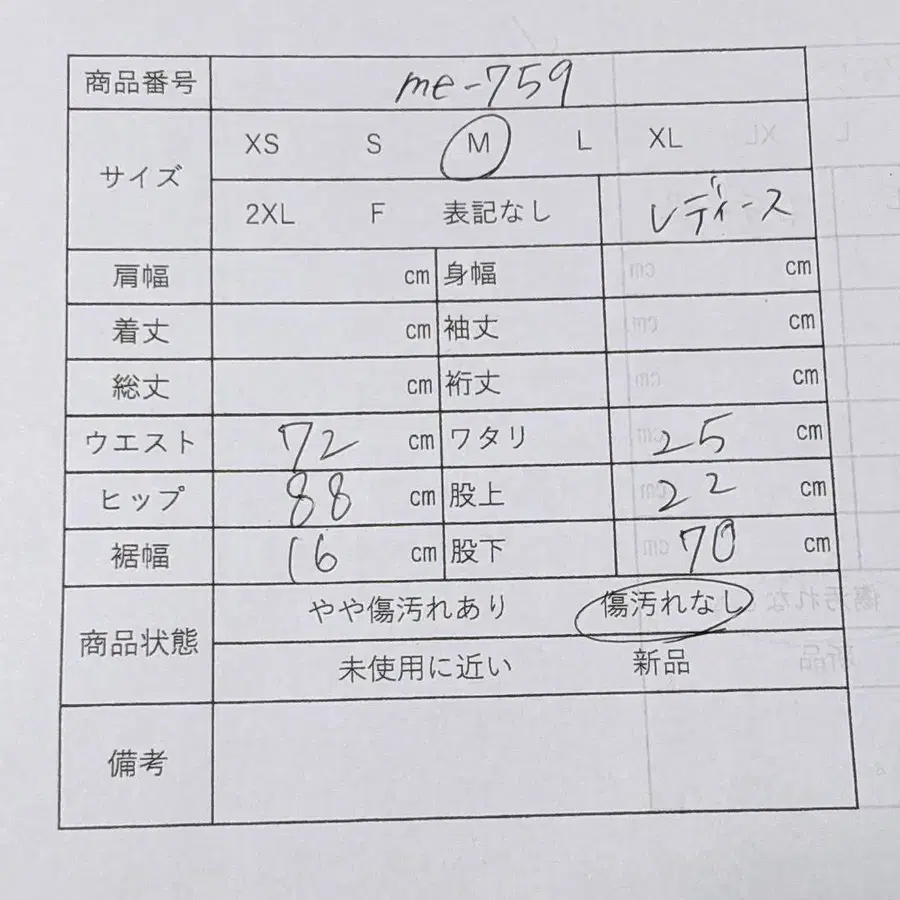 商品番号 me-759
サイズ XS S M L XL
2XL F 表記なし レディース
肩幅 cm 身幅 cm
着丈 cm 袖丈 cm
総丈 cm 裄丈 cm
ウエスト 72 cm ワタリ 25 cm
ヒップ 88 cm 股上 22 cm
裾幅 16 cm 股下 70 cm
商品状態 やや傷汚れあり 傷汚れなし
未使用に近い 新品
備考